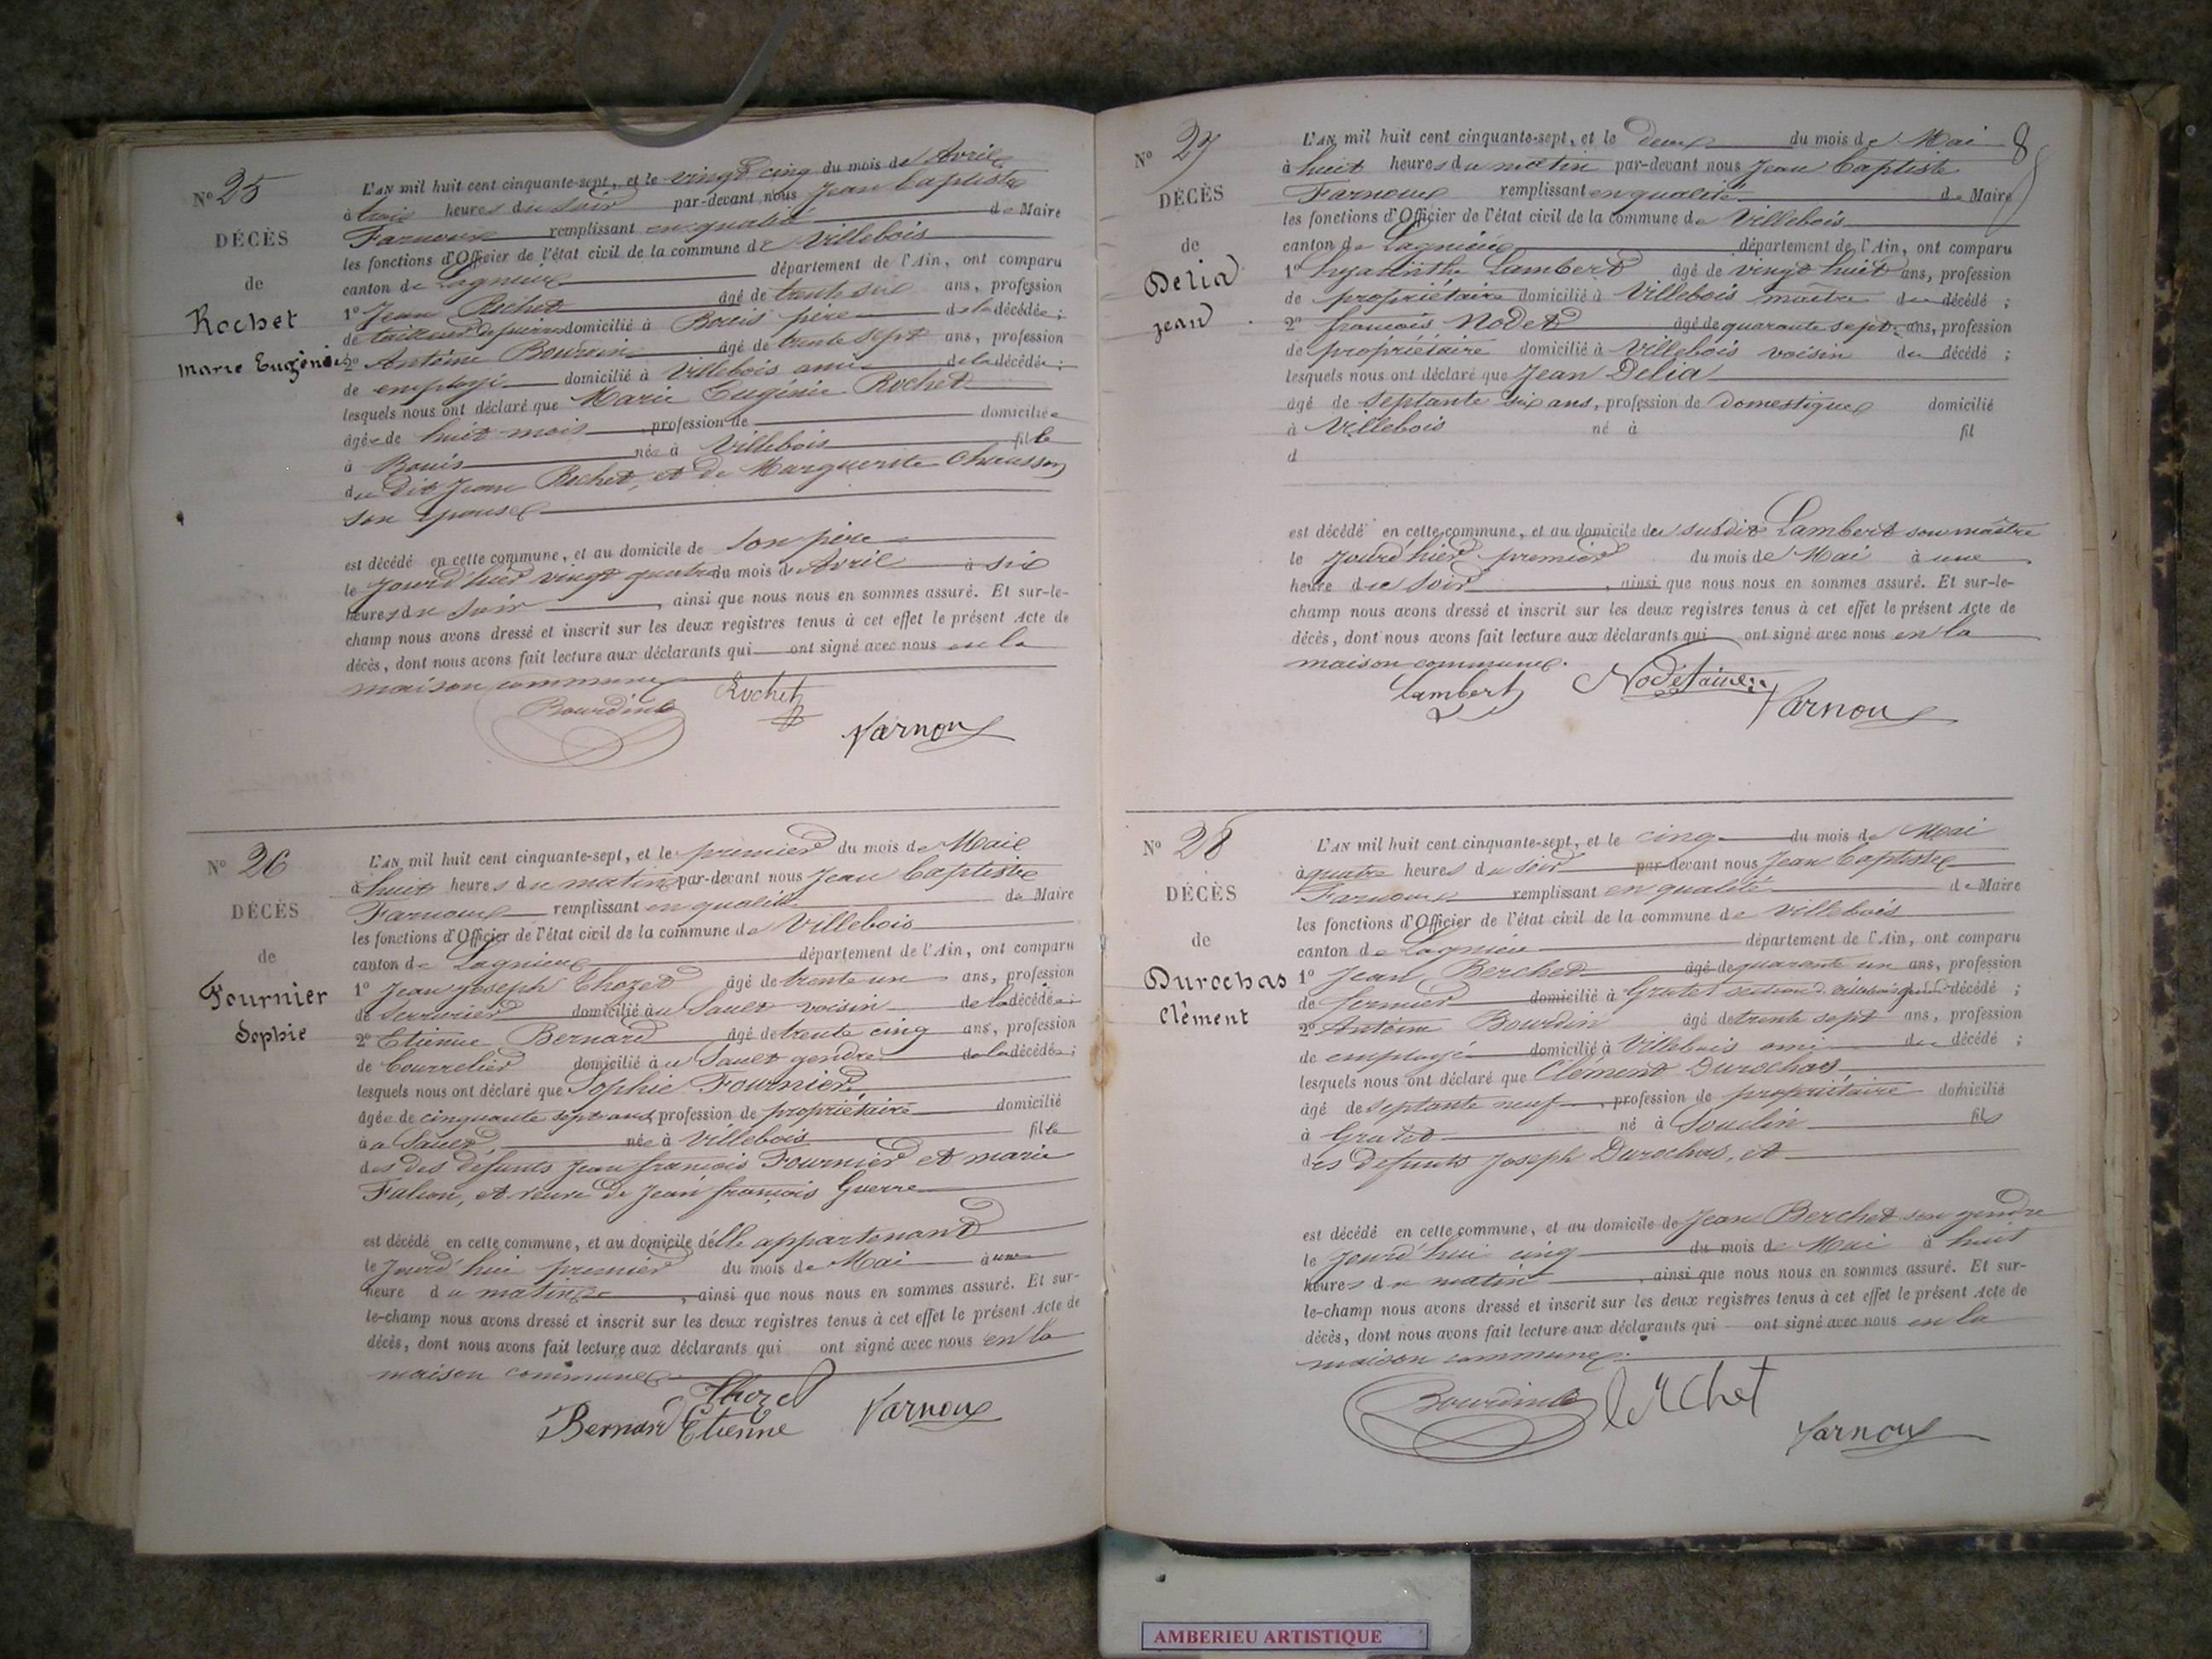 N° 25
DÉCÈS
de
Rochet
Marie Eugénie
L'AN mil huit cent cinquante-sept, et le vingt cinq du mois de Avril
à trois heures du soir par-devant nous Jean Baptiste
Farnoux remplissant en qualité de Maire
les fonctions d'Officier de l'état civil de la commune de Villebois
canton de Lagnieu département de l'Ain, ont comparu
1° Jean Rochet âgé de trente six ans, profession
de tailleur de pierre domicilié à Bouis père de la décédée ;
2° Antoine Bourdin âgé de trente sept ans, profession
de employé domicilié à Villebois ami de la décédée ;
lesquels nous ont déclaré que Marie Eugénie Rochet
âgée de huit mois, profession de domiciliée
à Bouis née à Villebois fille
du dit Jean Rochet, et de Marguerite Chausson
son épouse
est décédé en cette commune, et au domicile de son père
le jourd'hier vingt quatre du mois de Avril à six
heures du soir, ainsi que nous nous en sommes assuré. Et sur-le-
champ nous avons dressé et inscrit sur les deux registres tenus à cet effet le présent Acte de
décès, dont nous avons fait lecture aux déclarants qui ont signé avec nous en la
maison commune
Bourdin Rochet
Farnoux
N° 26
DÉCÈS
de
Fournier
Sophie
L'AN mil huit cent cinquante-sept, et le premier du mois de Mai
à huit heures du matin par-devant nous Jean Baptiste
Farnoux remplissant en qualité de Maire
les fonctions d'Officier de l'état civil de la commune de Villebois
canton de Lagnieu département de l'Ain, ont comparu
1° Jean Joseph Thozet âgé de trente un ans, profession
de Serrurier domicilié au Sault voisin de la décédée ;
2° Etienne Bernard âgé de trente cinq ans, profession
de Bourrelier domicilié au Sault gendre de la décédée ;
lesquels nous ont déclaré que Sophie Fournier
âgée de cinquante sept ans, profession de propriétaire domicilié
à a Sault, née à Villebois fille
des des défunts Jean françois Fournier et marie
Falcon, et veuve de Jean françois Guerre
est décédé en cette commune, et au domicile d'elle appartenant
le jourd'hui premier du mois de Mai à une
heure du matin, ainsi que nous nous en sommes assuré. Et sur-
le-champ nous avons dressé et inscrit sur les deux registres tenus à cet effet le présent Acte de
décès, dont nous avons fait lecture aux déclarants qui ont signé avec nous en la
maison commune
Thozet
Bernard Etienne Farnoux
8
N° 27
DÉCÈS
de
Delia
Jean
L'AN mil huit cent cinquante-sept, et le deux du mois de Mai
à huit heures du matin par-devant nous Jean Baptiste
Farnoux remplissant en qualité de Maire
les fonctions d'Officier de l'état civil de la commune de Villebois
canton de Lagnieu département de l'Ain, ont comparu
1° hyacinthe Lambert âgé de vingt huit ans, profession
de propriétaire domicilié à Villebois maître du décédé ;
2° françois Nodet âgé de quarante sept ans, profession
de propriétaire domicilié à Villebois voisin du décédé ;
lesquels nous ont déclaré que Jean Delia
âgé de septante six ans, profession de Domestique domicilié
à Villebois né à fil
d
est décédé en cette commune, et au domicile du susdit Lambert son maître
le jourd'hier premier du mois de Mai à une
heure du soir, ainsi que nous nous en sommes assuré. Et sur-le-
champ nous avons dressé et inscrit sur les deux registres tenus à cet effet le présent Acte de
décès, dont nous avons fait lecture aux déclarants qui ont signé avec nous en la
maison commune.
Lambert Farnoux
N° 28
DÉCÈS
de
Durochas
Clément
L'AN mil huit cent cinquante-sept, et le cinq du mois de Mai
à quatre heures du soir par-devant nous Jean Baptiste
Farnoux remplissant en qualité de Maire
les fonctions d'Officier de l'état civil de la commune de Villebois
canton de Lagnieu département de l'Ain, ont comparu
1° Jean Berchet âgé de quarante un ans, profession
de fermier domicilié à section de villebois décédé ;
2° Antoine Bourdin âgé de trente sept ans, profession
de employé domicilié à Villebois ami du décédé ;
lesquels nous ont déclaré que Clément Durochas
âgé de septante neuf, profession de propriétaire domicilié
à né à Souclin fils
des défunts Joseph Durochas, et
est décédé en cette commune, et au domicile de Jean Berchet son gendre
le jourd'hui cinq du mois de Mai à huit
heures du matin, ainsi que nous nous en sommes assuré. Et sur-
le-champ nous avons dressé et inscrit sur les deux registres tenus à cet effet le présent Acte de
décès, dont nous avons fait lecture aux déclarants qui ont signé avec nous en la
maison commune.
Bourdin berchet
Farnoux
AMBERIEU ARTISTIQUE